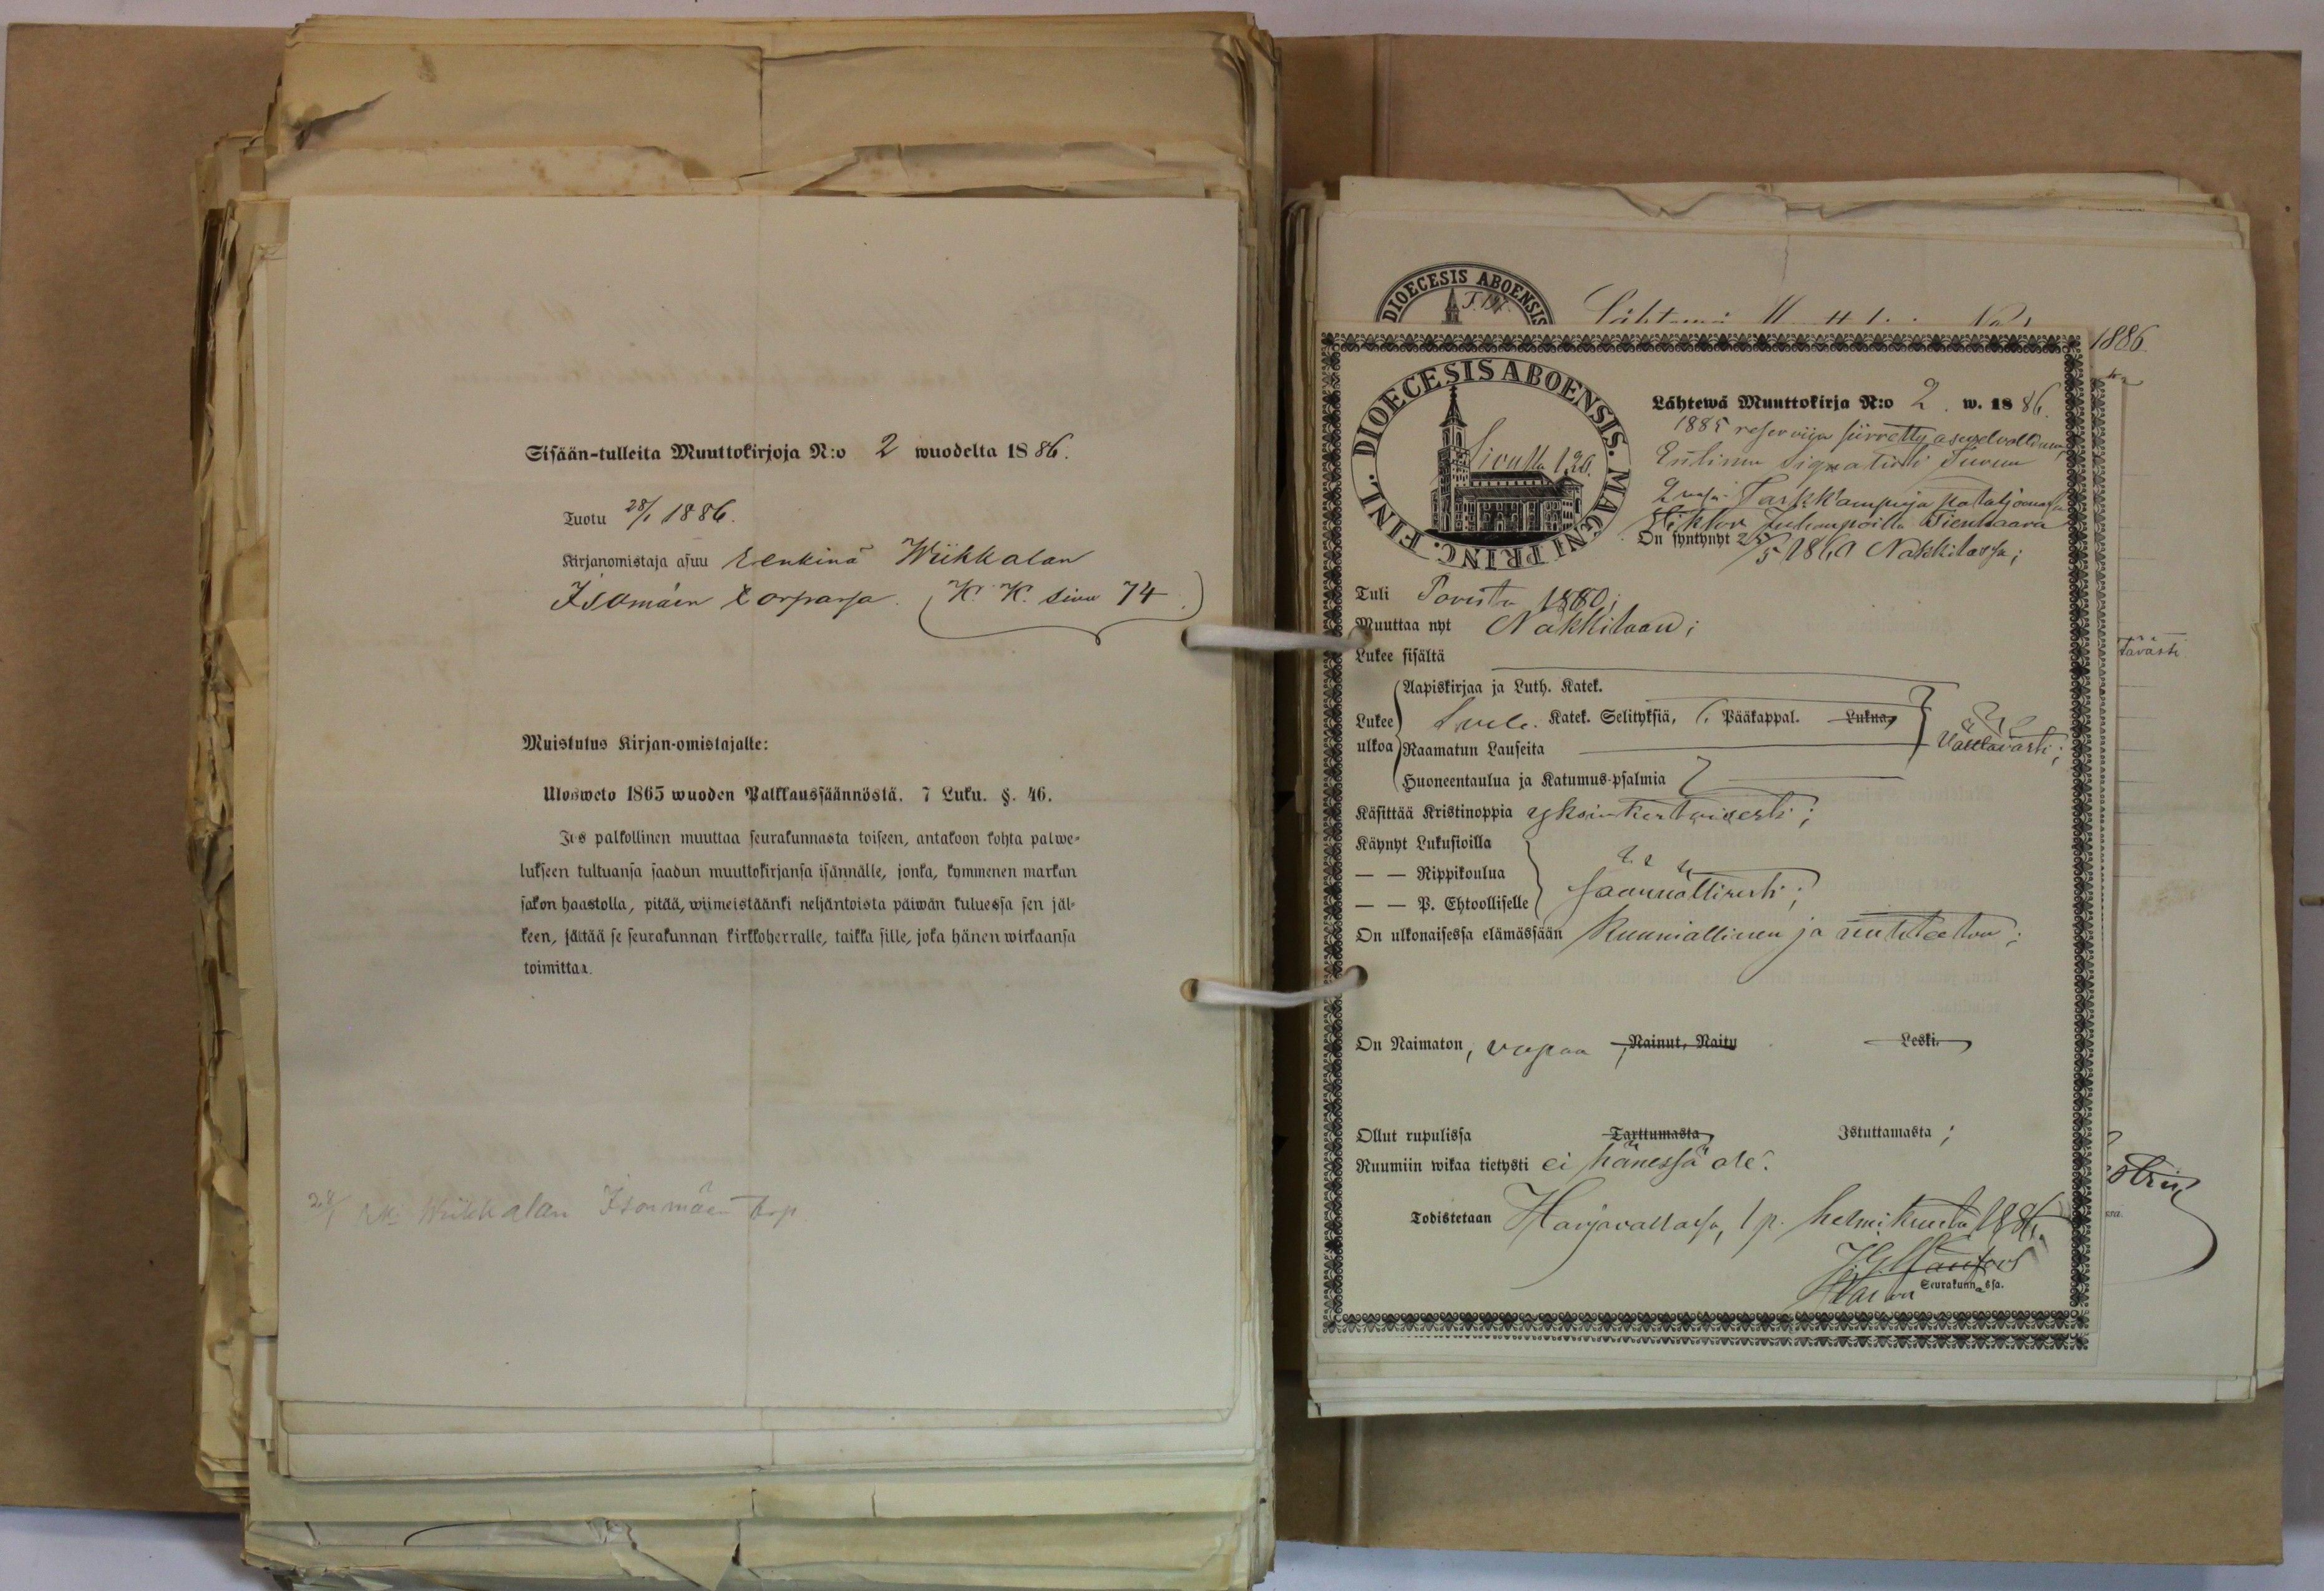 Sisään-tulleita Muuttokirjoja N:o 2 wuodelta 1886.
Tuotu 28/1 1886.
Kirjanomistaja asuu renkinä Wiikkalan
Isomäen torparsa. (K. K. sivu 74.)
Muistutus Kirjan-omistajalle:
Ulosweto 1865 wuoden Palkkaussäännöstä. 7 Luku. §. 46.
Jos palkollinen muuttaa seurakunnasta toiseen, antakoon kohta palwe-
lukseen tultuansa saadun muuttokirjansa isännälle, jonka, kymmenen markan
sakon haastolla, pitää, wiimeistäänki neljäntoista päiwän kuluessa sen jäl-
keen, jättää se seurakunnan kirkkoherralle, taikka sille, joka hänen wirkaansa
toimittaa.
28/1 Wiikkalan Isonmäen torp.
DIOECESIS ABOENSIS
1886
DIOECESIS ABOENSIS. MAGNI PRINC. FINL.
Sivulta 126.
Lähtewä Muuttokirja N:o 2. w. 1886.
1885 reserviin siirretty asevelvollinen,
Entinen Turun
Tarkk'ampuja Pataljoonassa
Viktor Juhanpoika Tienhaara
On syntynyt 25/5 1860 Nakkilassa;
Tuli Porista 1880;
Muuttaa nyt Nakkilaan;
Lukee sisältä
Lukee ulkoa
Aapiskirjaa ja Luth. Katek.
Katek. Selityksiä, Pääkappal. Lukua,
Raamatun Lauseita
Välttävästi;
Huoneentaulua ja Katumus-psalmia
Käsittää Kristinoppia yksinkertaisesti;
Käynyt Lukusioilla
— — Rippikoulua
— — P. Ehtoollisella
säännöllisesti;
On ulkonaisessa elämässään kunniallinen ja nuhteeton;
On Naimaton, vapaa, Nainut, Naitu Leski.
Ollut rupulissa Tarttumasta, Istuttamasta;
Ruumiin wikaa tietysti ei hänessä ole.
Todistetaan Harjavallassa, 1 p. helmikuuta 1886.
Seurakunnassa.